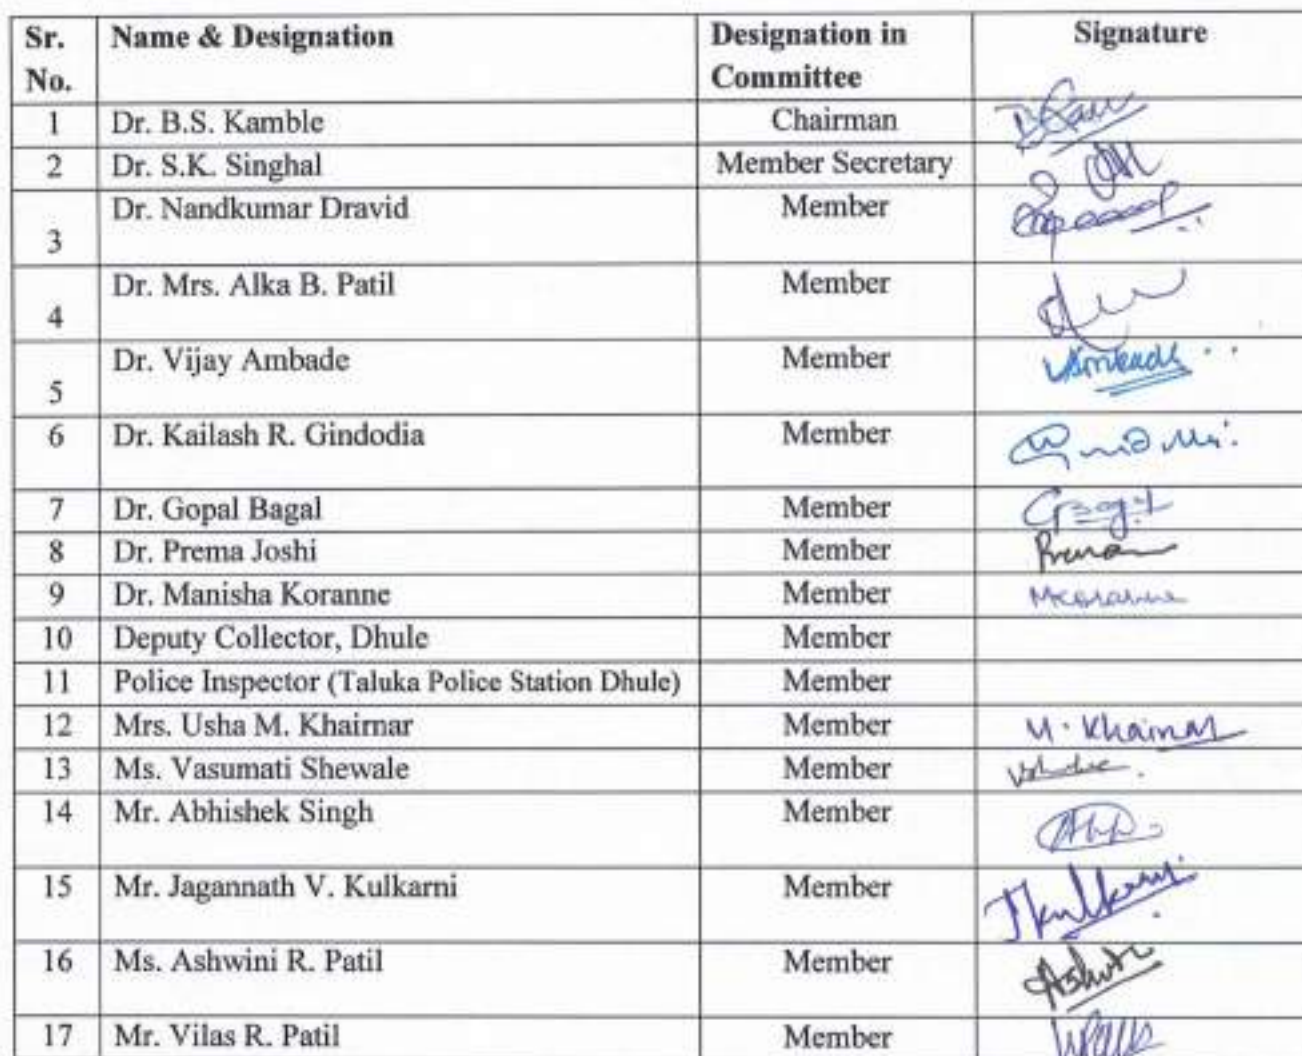 Sr. No. Name & Designation Designation in Committee Signature
1 Dr. B.S. Kamble Chairman
2 Dr. S.K. Singhal Member Secretary
3 Dr. Nandkumar Dravid Member
4 Dr. Mrs. Alka B. Patil Member
5 Dr. Vijay Ambade Member
6 Dr. Kailash R. Gindodia Member
7 Dr. Gopal Bagal Member
8 Dr. Prema Joshi Member
9 Dr. Manisha Koranne Member
10 Deputy Collector, Dhule Member
11 Police Inspector (Taluka Police Station Dhule) Member
12 Mrs. Usha M. Khairnar Member U. Khairnar
13 Ms. Vasumati Shewale Member
14 Mr. Abhishek Singh Member
15 Mr. Jagannath V. Kulkarni Member Jkulkarni
16 Ms. Ashwini R. Patil Member
17 Mr. Vilas R. Patil Member